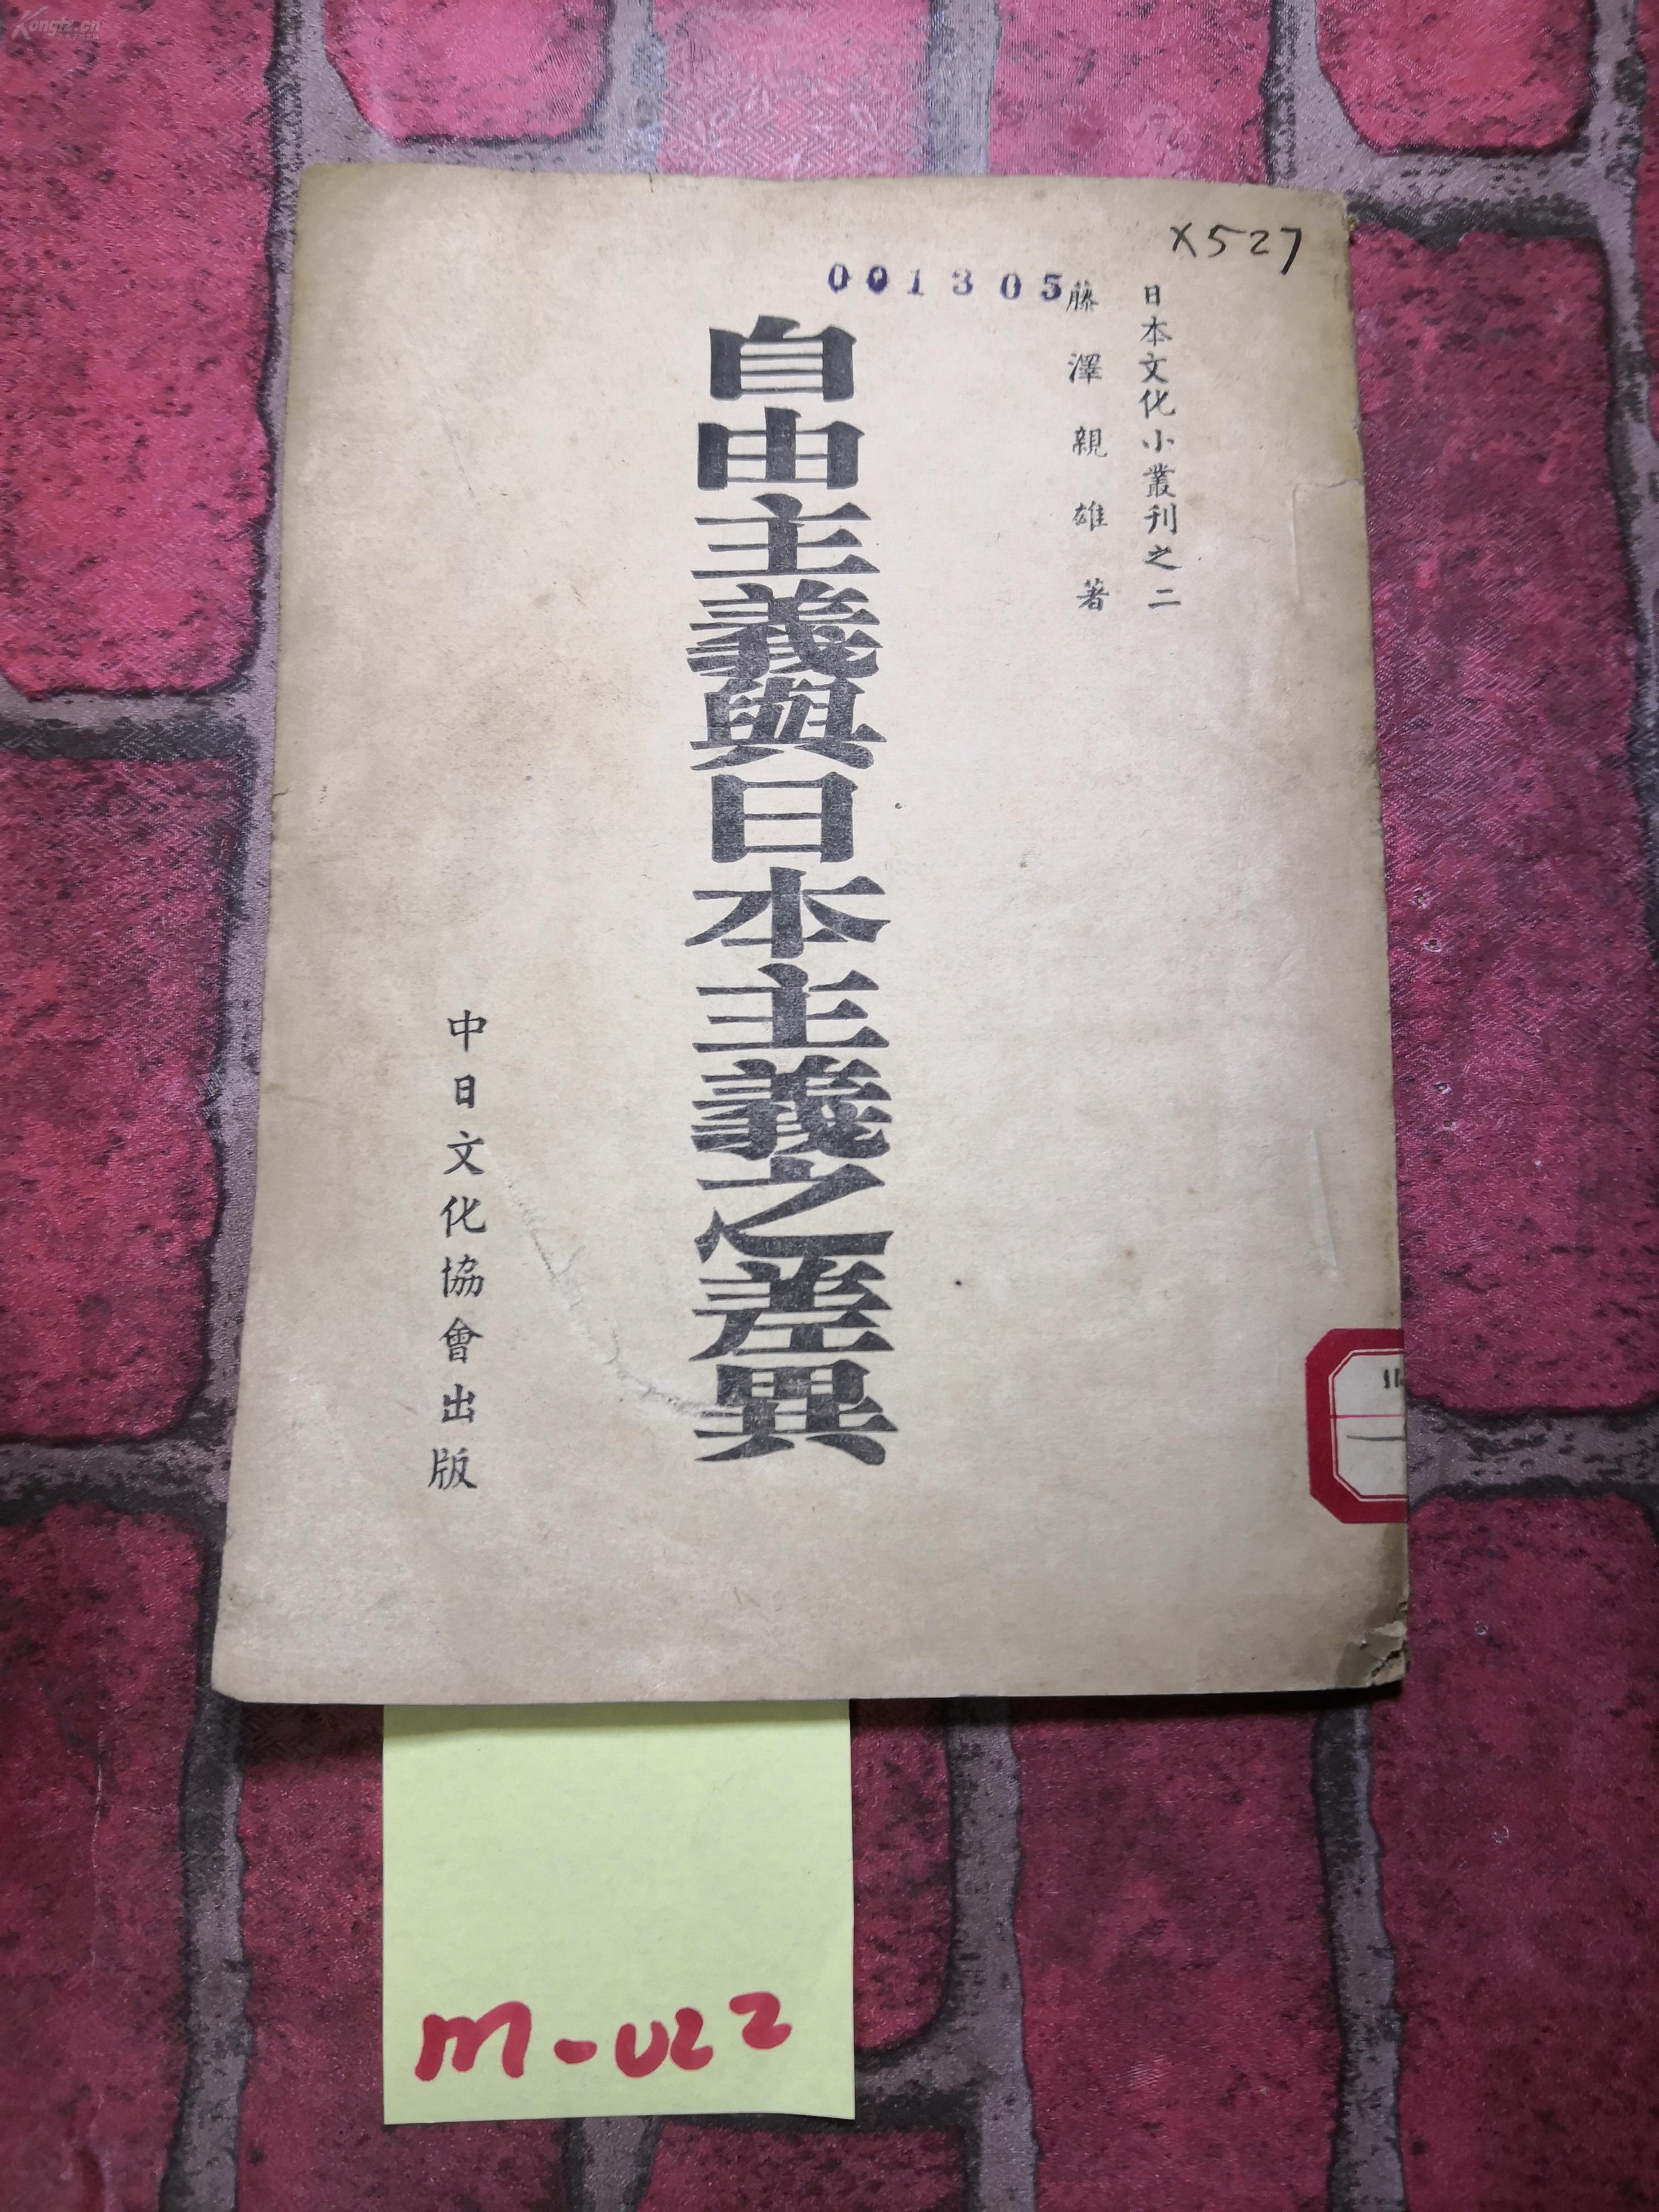 Kongfz.cn
X527
001305
日本文化小叢刊之二
藤澤親雄著
自由主義與日本主義之差異
中日文化協會出版
m-022